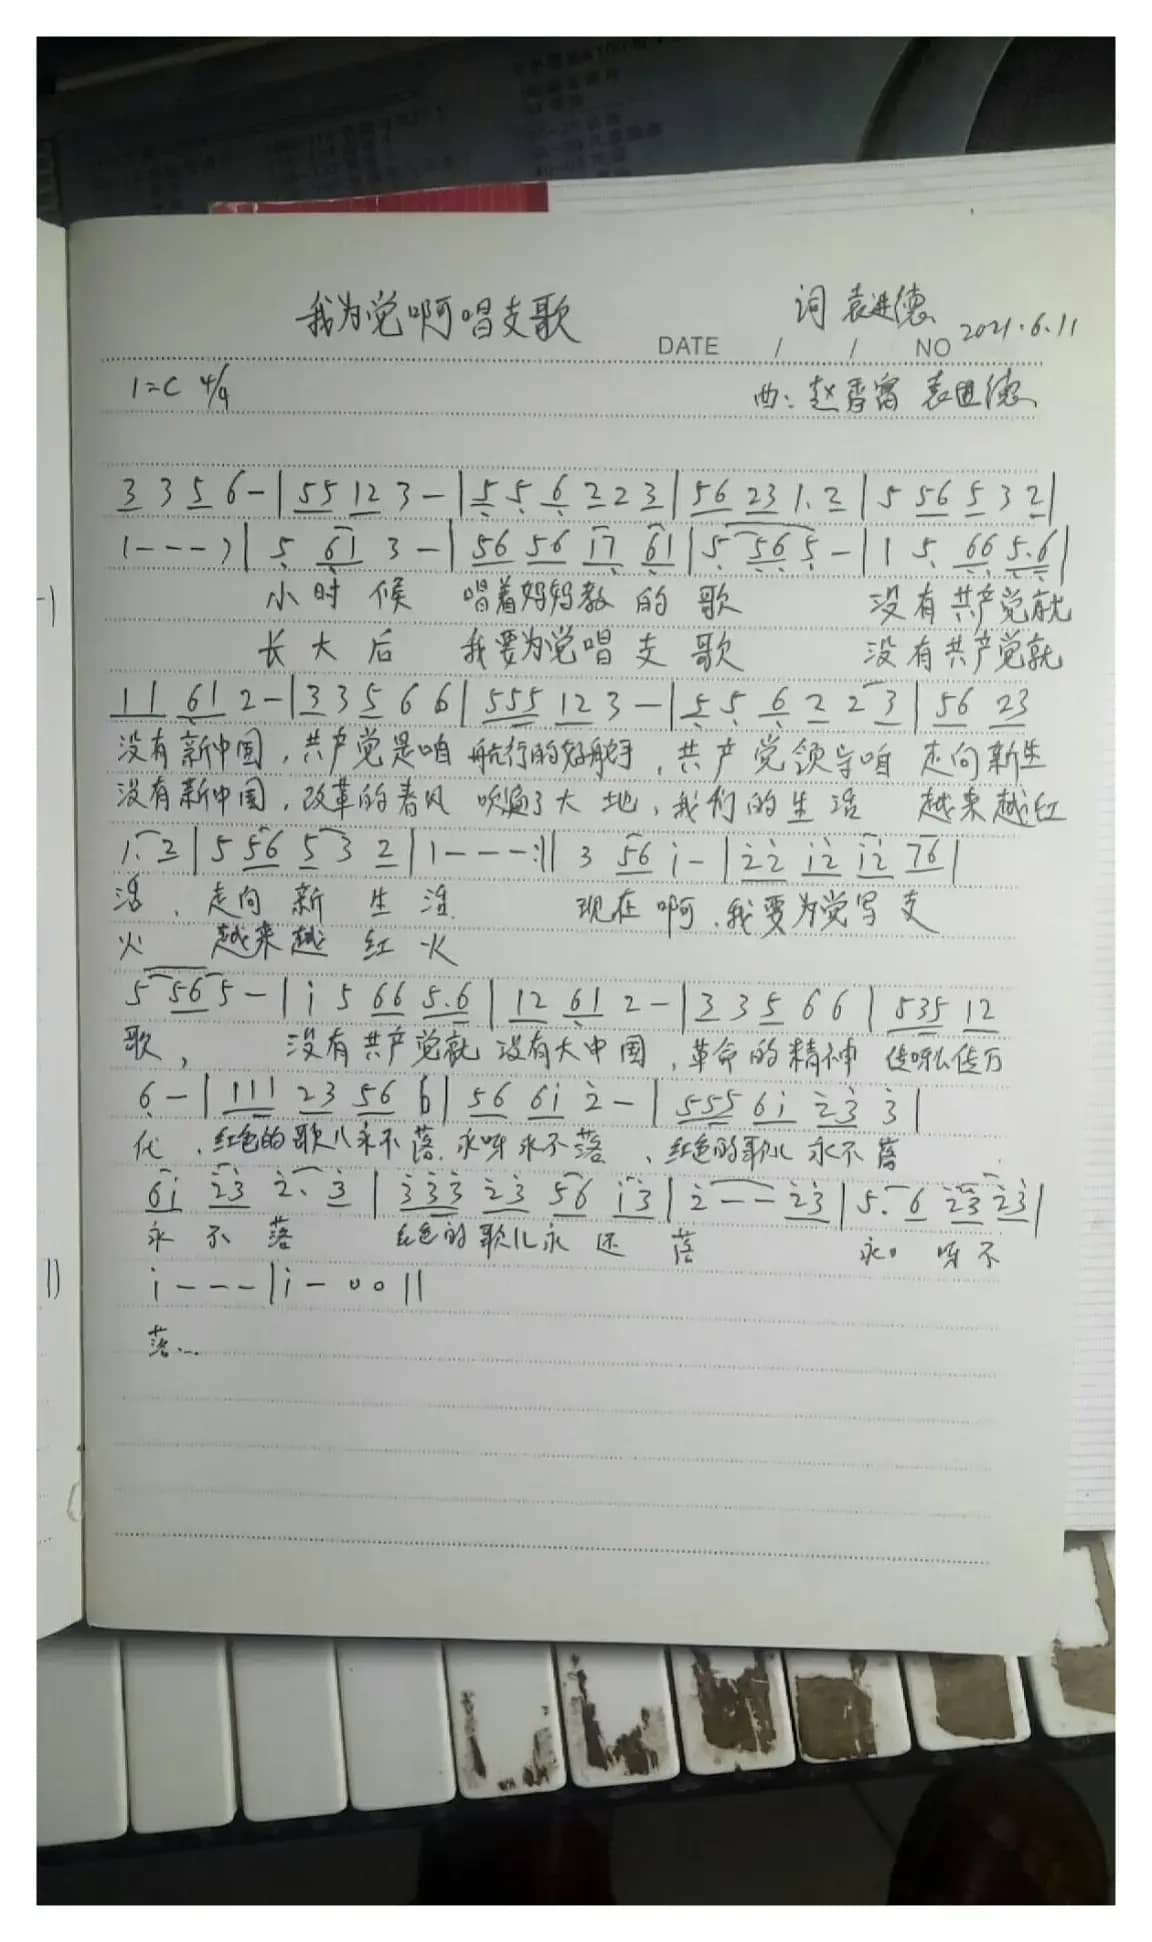 我为党啊唱支歌
词 袁进德
DATE / / NO 2021.6.11
1=C 4/4
曲: 赵香窗 袁进德
3 3 5 6 - | 55 12 3 - | 5 5 6 2 2 3 | 56 23 1. 2 | 5 56 5 3 2 |
1 - - - ) | 5 61 3 - | 56 56 17 61 | 5 56 5 - | 1 5 66 5.6 |
小时候 唱着妈妈教的歌 没有共产党就
长大后 我要为党唱支歌 没有共产党就
11 61 2 - | 3 3 5 6 6 | 555 12 3 - | 5 5 6 2 2 3 | 56 23
没有新中国, 共产党是咱 航行的好舵手, 共产党领导咱 走向新生
没有新中国, 改革的春风 吹遍了大地, 我们的生活 越来越红
1. 2 | 5 56 5 3 2 | 1 - - - :|| 3 56 i - | i̇2̇ i2̇ i2̇ 76 |
活, 走向新生活 现在啊, 我要为党写支
火 越来越红火
5 56 5 - | i 5 66 5.6 | 12 61 2 - | 3 3 5 6 6 | 535 12
歌, 没有共产党就 没有大中国, 革命的精神 传万
6 - | 111 23 56 6 | 56 6i 2̇ - | 555 6i 2̇3̇ 3̇ |
代, 红色的歌儿永不落, 永呀永不落, 红色的歌儿 永不落
6i 2̇3̇ 2̇. 3̇ | 3̇3̇3̇ 2̇3̇ 56 i3̇ | 2̇ - - 2̇3̇ | 5. 6 2̇3̇ 2̇3̇ |
永不落 红色的歌儿永 落 永 呀不
i - - - | i - 0 0 ||
落...